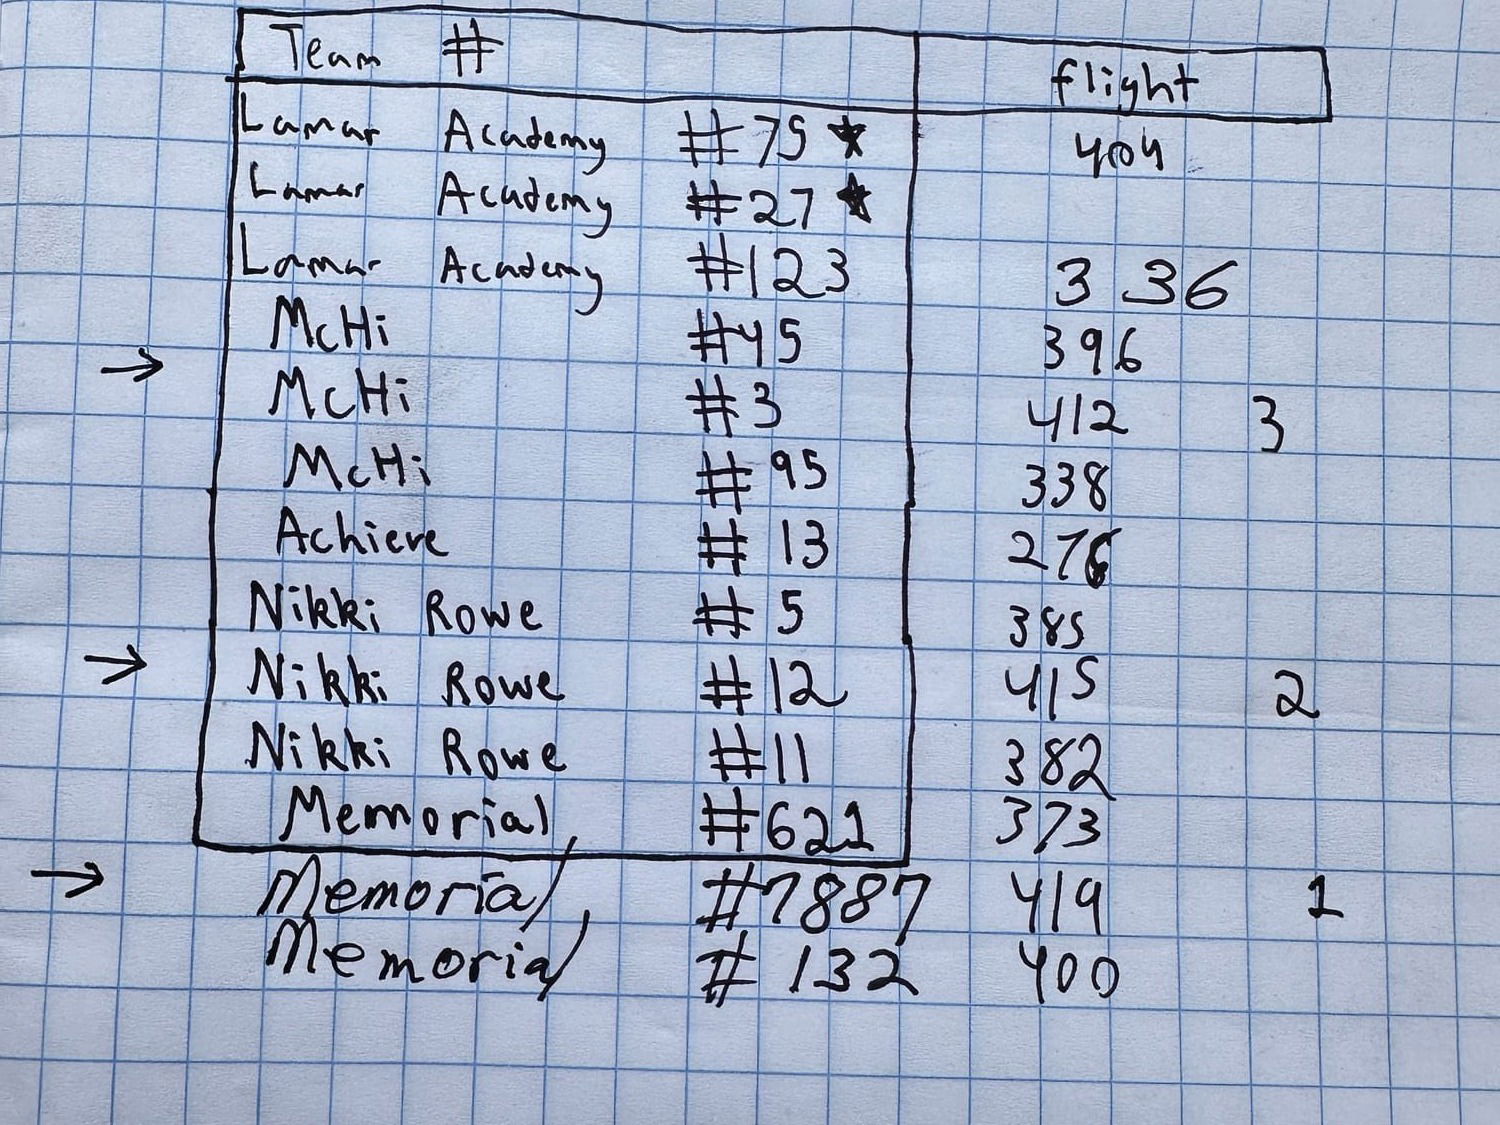 Team #  flight
Lamar Academy #75 ★  404
Lamar Academy #27 ★
Lamar Academy #123  3 36
McHi #45  396
→ McHi #3  412  3
McHi # 95  338
Achieve # 13  276
Nikki Rowe # 5  385
→ Nikki Rowe # 12  415  2
Nikki Rowe #11  382
Memorial #621  373
→ Memorial #7887  419  1
Memorial # 132  400